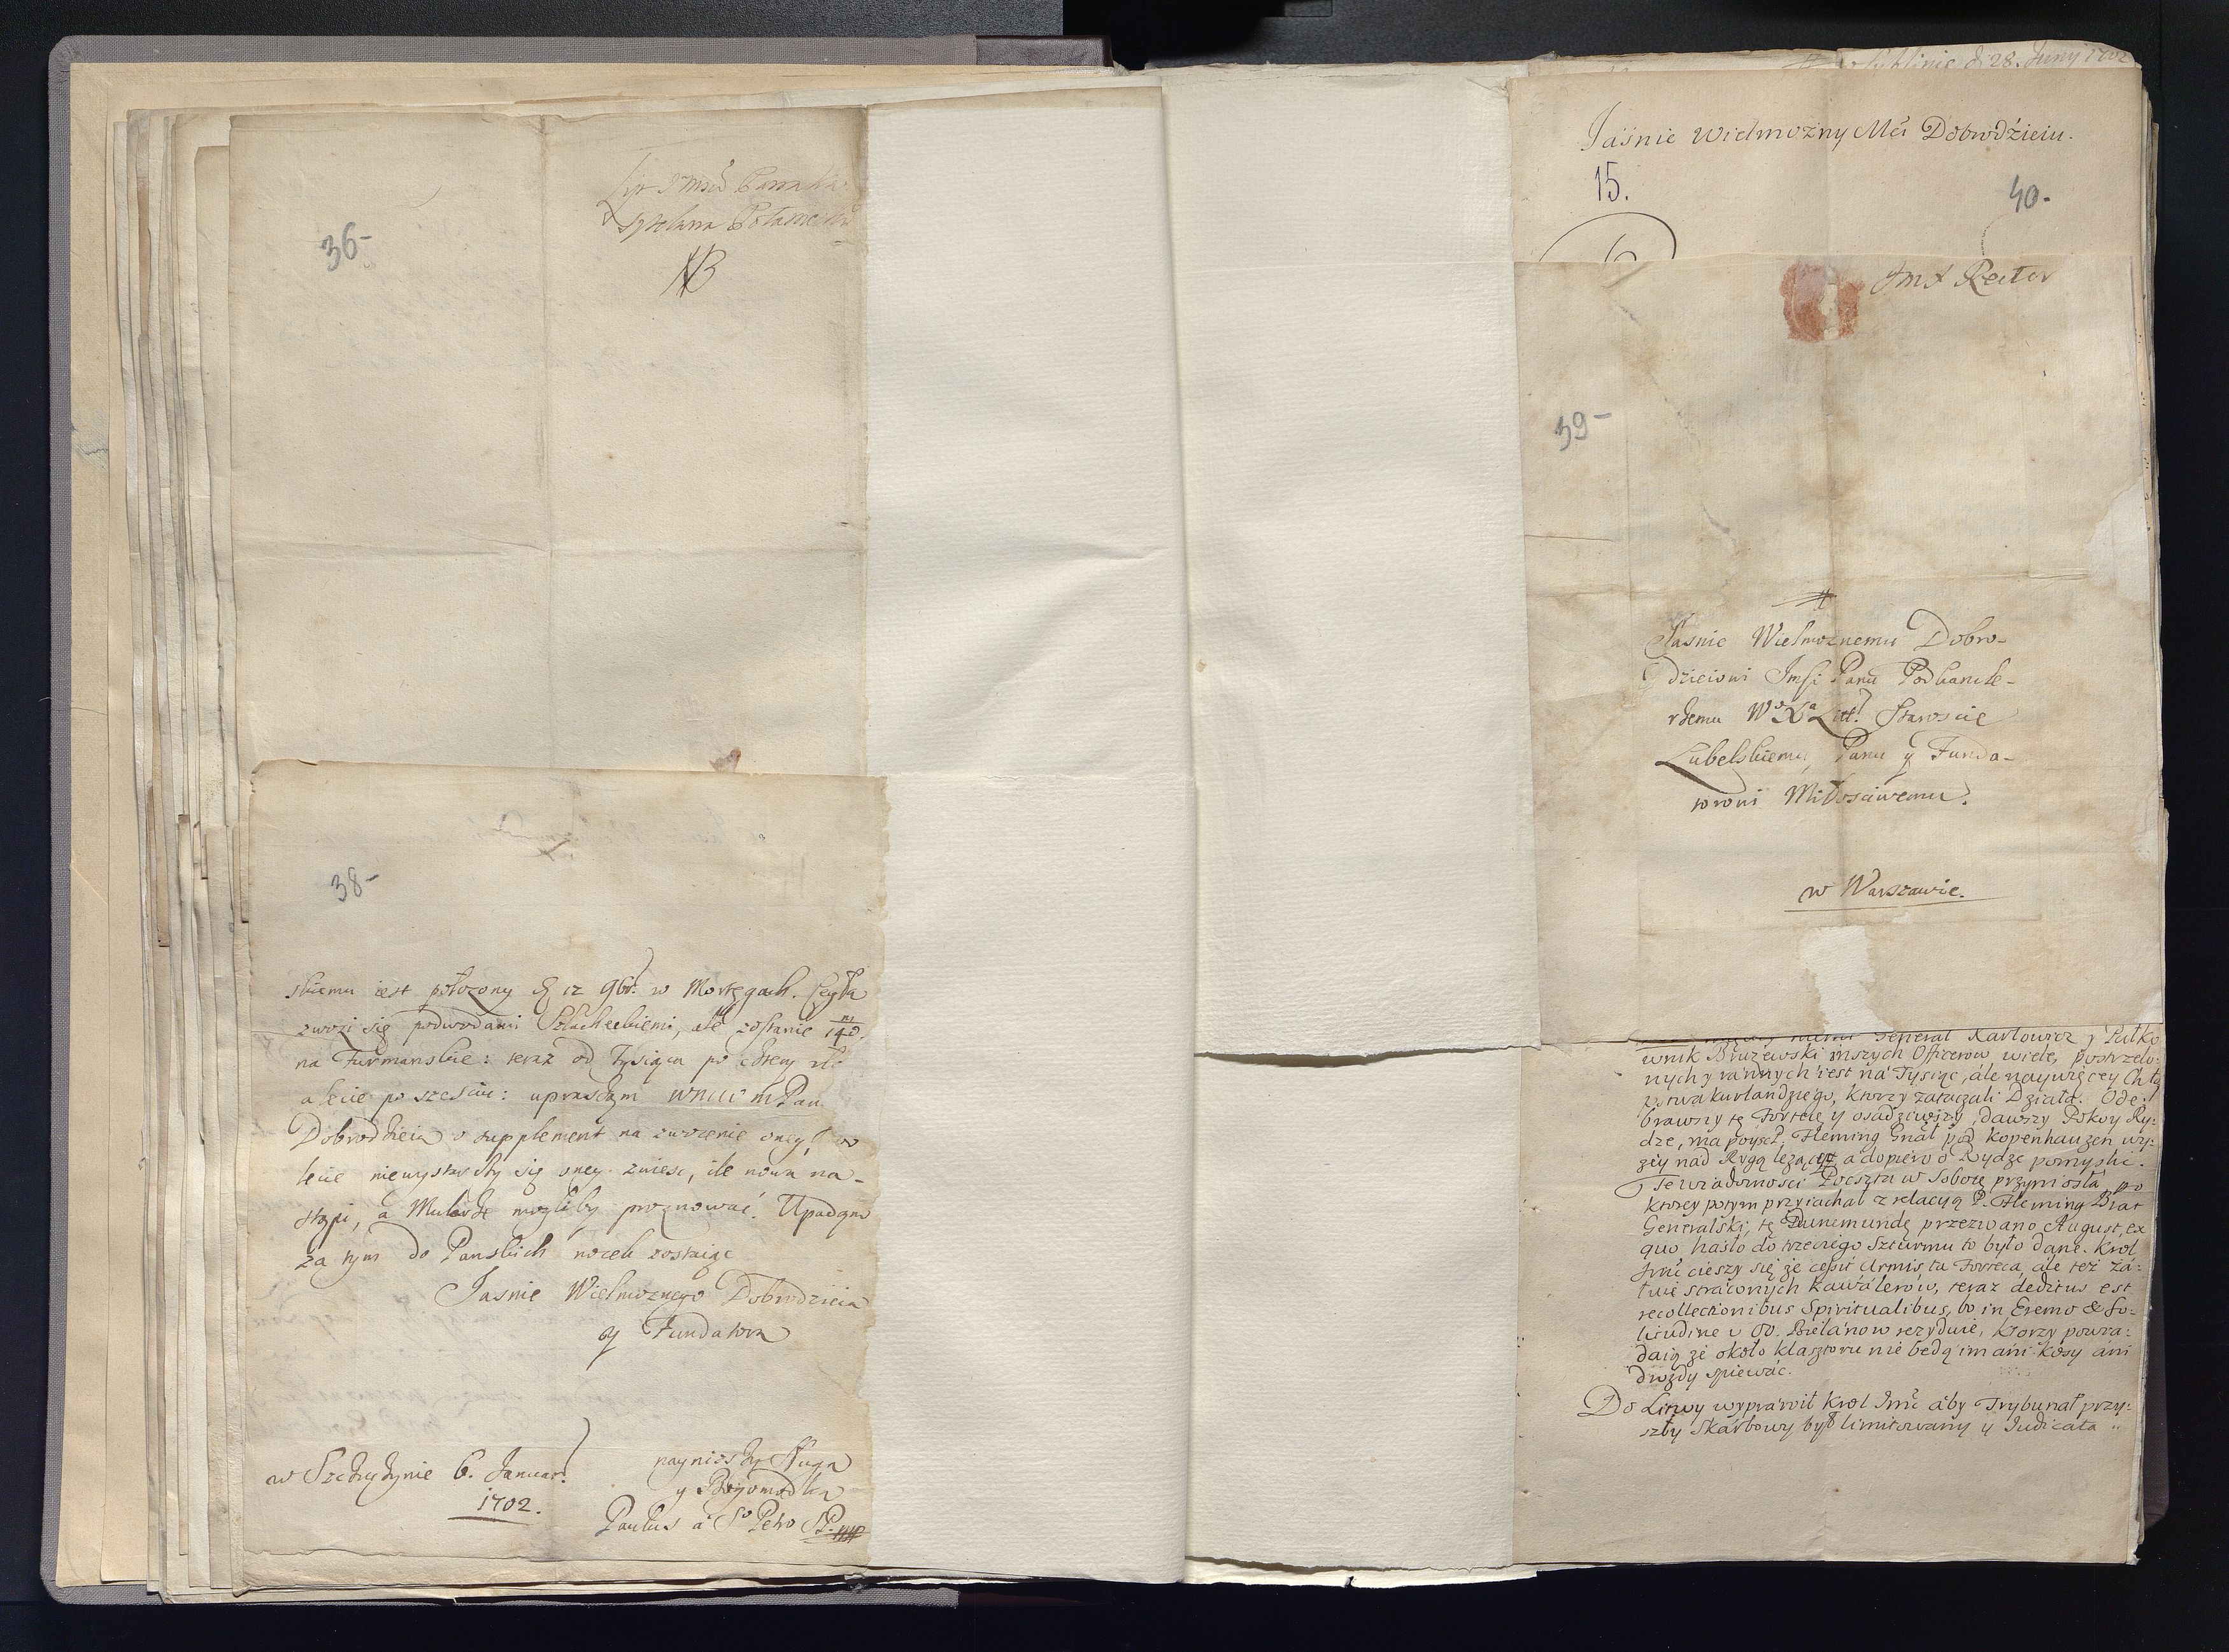 36-
NB
38-
skiemu iest położony d 12 9br. w Mortęgach. Cegła
zwozi się podwodami Szlacheckiemi, ale zostanie 140.
na Furmanskie: teraz od Tysiąca po
a lecie po szesciu: upraszam Pan
Dobrodzieia o supplement na zwozenie oney, bo
lecie niewystarczy się oney zwiesc, ile nowa na-
stąpi, a Mularze mogliby proznować. Upadam
za tym do Panskich nocek zostaiąc
Jasnie Wielmoznego Dobrodzieia
y Fundatora
w Szczuczynie 6. Januar.
1702.
naynizszy Sługa
y Bogomodlca
Paulus a So Petro SP.
d 28. Juny 1702
Jaśnie Wielmożny Mći Dobrodźieiu.
15.
40.
Rector
39-
Jasnie Wielmoznemu Dobro-
dzieiowi Jmsi Panu Podkancle-
rzemu Wo Xa Litt. Staroscie
Lubelskiemu, Panu y Funda-
torowi Miłosciwemu.
w Warszawie.
General Karlowicz y Pułko
wnik Bruzewski inszych Officerow wiele, postrzelo-
nych y rannych iest na Tysiąc, ale naywięcey Chło
pstwa kurlandzkiego, ktorzy zataczali Działa. Ode-
brawszy tę Fortecę y osadziwszy, dawszy Pokoy Ry-
dze, ma poyść Fleming Gnał pod Kopenhauzen wy-
zey nad Rygą lezącą a dopiero o Rydze pomysli.
Te wiadomosci Poczta w Sobotę przyniosła, po
ktorey potym przyiachal z relacyą P. Fleming Brat
Generalski, tę Dunemundę przezwano August, ex
quo hasło do trzeciego Szturmu to było dane. Krol
Jmć cieszy się że Armis ta Forteca, ale też ża-
łuie straconych Kawalerow, teraz deditus est
recollectionibus Spiritualibus, bo in Eremo & So-
litudine u OO. Bielanow rezyduie, ktorzy powia-
daią że około klasztoru nie będą im ani kosy ani
drozdy spiewać.
Do Litwy wyprawił Krol Jmć aby Trybunał przy-
szły Skarbowy był limitowany y Judicata